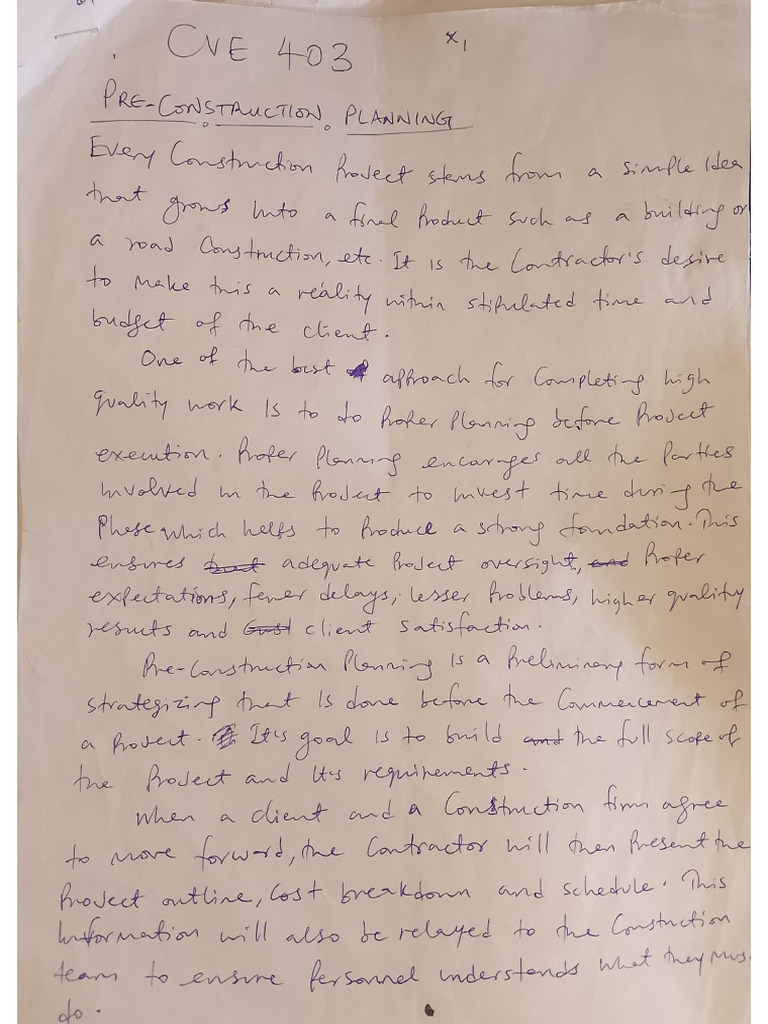 CVE 403
x1
PRE-CONSTRUCTION PLANNING
Every Construction Project stems from a simple Idea
that grows Into a final Product such as a building or
a road Construction, etc. It is the Contractor's desire
to make this a reality within stipulated time and
budget of the client.
One of the best approach for Completing high
quality work Is to do Proper Planning before Project
execution. Proper Planning encorages all the Parties
Involved In the Project to Invest time during the
Phase which helps to Produce a strong foundation. This
ensures adequate Project oversight, Proper
expectations, fewer delays, lesser Problems, higher quality
results and client satisfaction.
Pre-Construction Planning Is a Preliminary form of
strategizing that Is done before the Commencement of
a Project. It's goal is to build the full scope of
the Project and It's requirements.
When a client and a Construction firm agree
to move forward, the Contractor will then Present the
Project outline, Cost breakdown and schedule. This
Information will also be relayed to the Construction
team to ensure Personnel understands what they mus
do.